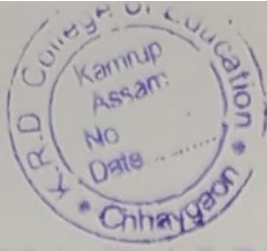 K.R.D College of Education
Chhaygaon
Kamrup
Assam
No
Date ..........